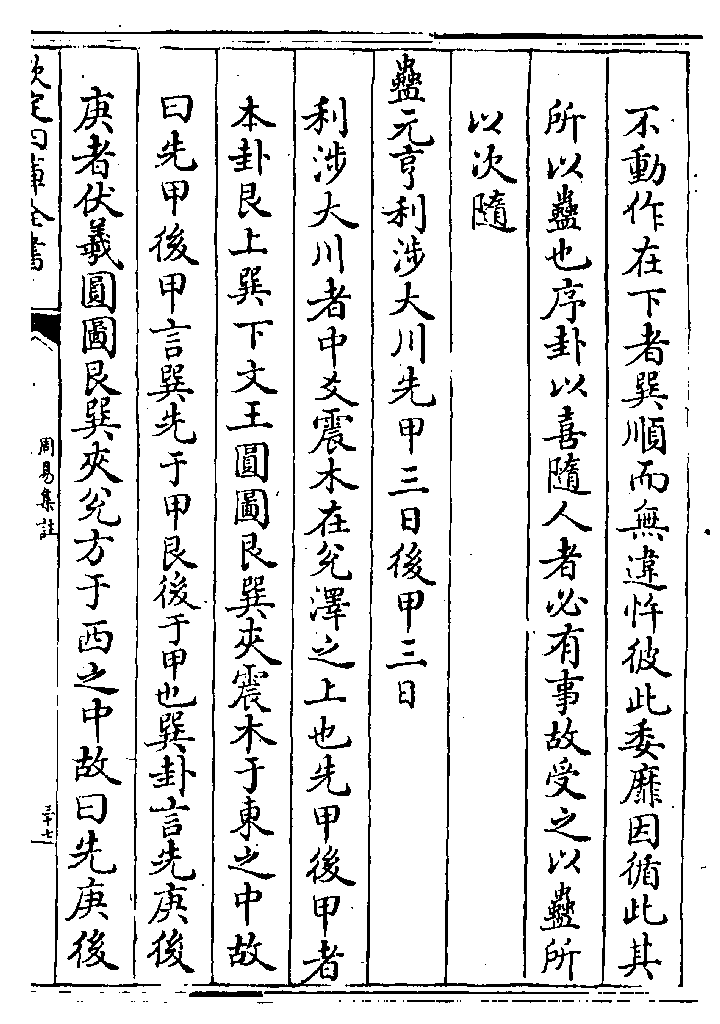 不動作在下者巽順而無違忤彼此委靡因循此其
所以蠱也序卦以喜隨人者必有事故受之以蠱所
以次隨
蠱元亨利涉大川先甲三日後甲三日
利涉大川者中爻震木在兌澤之上也先甲後甲者
本卦艮上巽下文王圓圖艮巽夾震木于東之中故
曰先甲後甲言巽先于甲艮後于甲也巽卦言先庚後
庚者伏羲圓圖艮巽夾兌方于西之中故曰先庚後
欽定四庫全書
周易集註
三十七